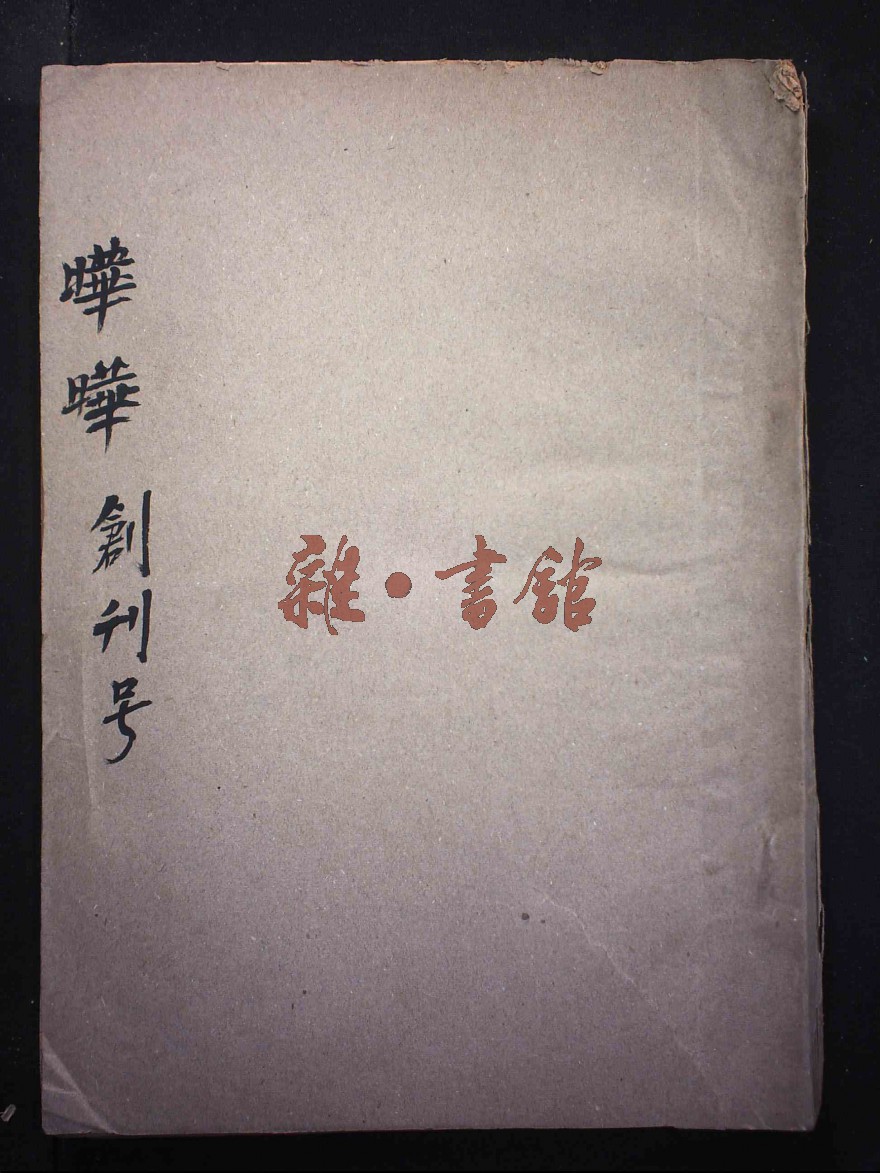 曄曄創刊号
雜·書館